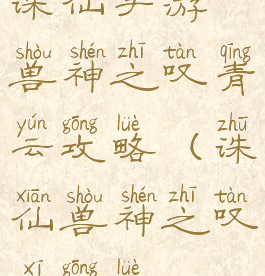 诛仙手游
shòu shén zhī tàn qīng
兽神之叹青
yún gōng lüè zhū
云攻略（诛
xiān shòu shén zhī tàn
仙兽神之叹
xī gōng lüè